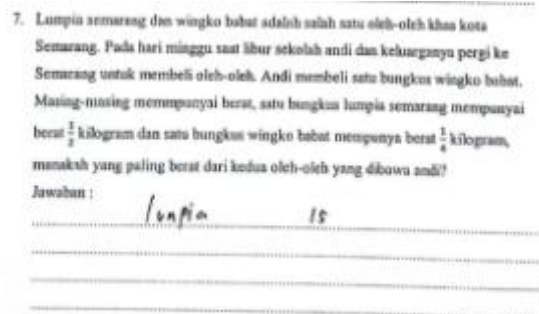 7. Lumpia semarang dan wingko babat adalah salah satu oleh-oleh khas kota
Semarang. Pada hari minggu saat libur sekolah andi dan keluarganya pergi ke
Semarang untuk membeli oleh-oleh. Andi membeli satu bungkus wingko babat.
Masing-masing memmpunyai berat, satu bungkus lumpia semarang mempunyai
berat kilogram dan satu bungkus wingko babat mempunya berat kilogram,
manakah yang paling berat dari kedua oleh-oleh yang dibawa andi?
Jawaban :
lunpia 15